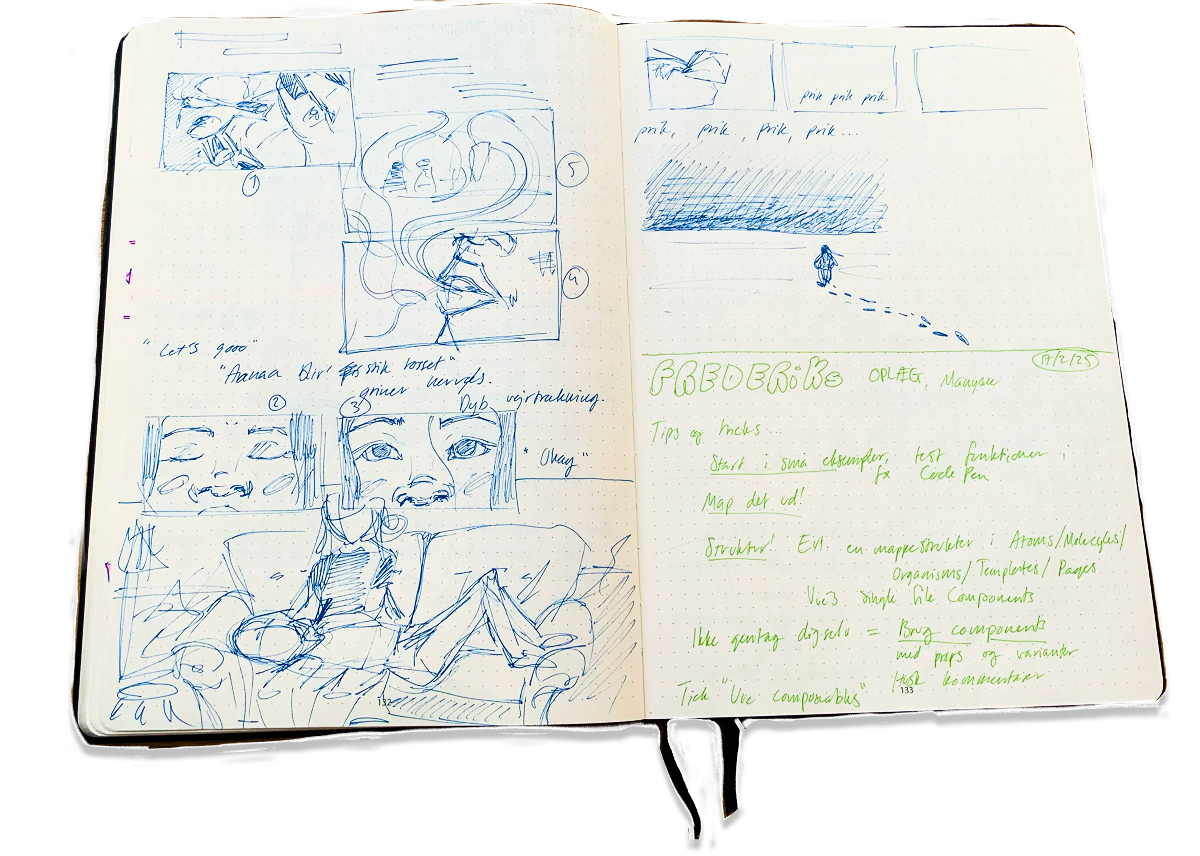 1
5
4
"Let's gooo"
"Aanaa blir' stik tosset"
griner nervøs.
Dyb vejrtrækning.
2
3
"Okay"
132
prik prik prik
prik, prik, prik, prik...
17/2/25
FREDERIKs OPLÆG,
Tips og tricks...
Start i små eksempler, test funktioner i
fx Code Pen
Map det ud!
Struktur! Evt. en mappestruktur i Atoms/Molecyles/
Organisms/Templates/Pages
Vue3 single file Components
Ikke gentag dig selv = Brug components
med props og varianter
Husk kommentarer
133
Tjek "Vue composables"